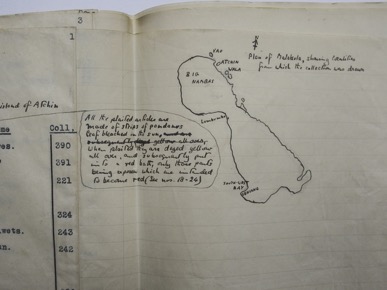 3
1
island of Atchin
Coll.
390
391
221
324
243
242
All the plaited articles are
made of strips of pandanus
leaf bleached in the sun,
When plaited they are dyed yellow
all over, and subsequently put
into a red bath, only those parts
being exposed which are intended
to become red (See nos. 18-26)
N
Plan of Malekula, showing localities
from which the collection was drawn
VAO
ATCHIN
WALA
BIG
NAMBAS
Lambumbu
SOUTH-WEST
BAY